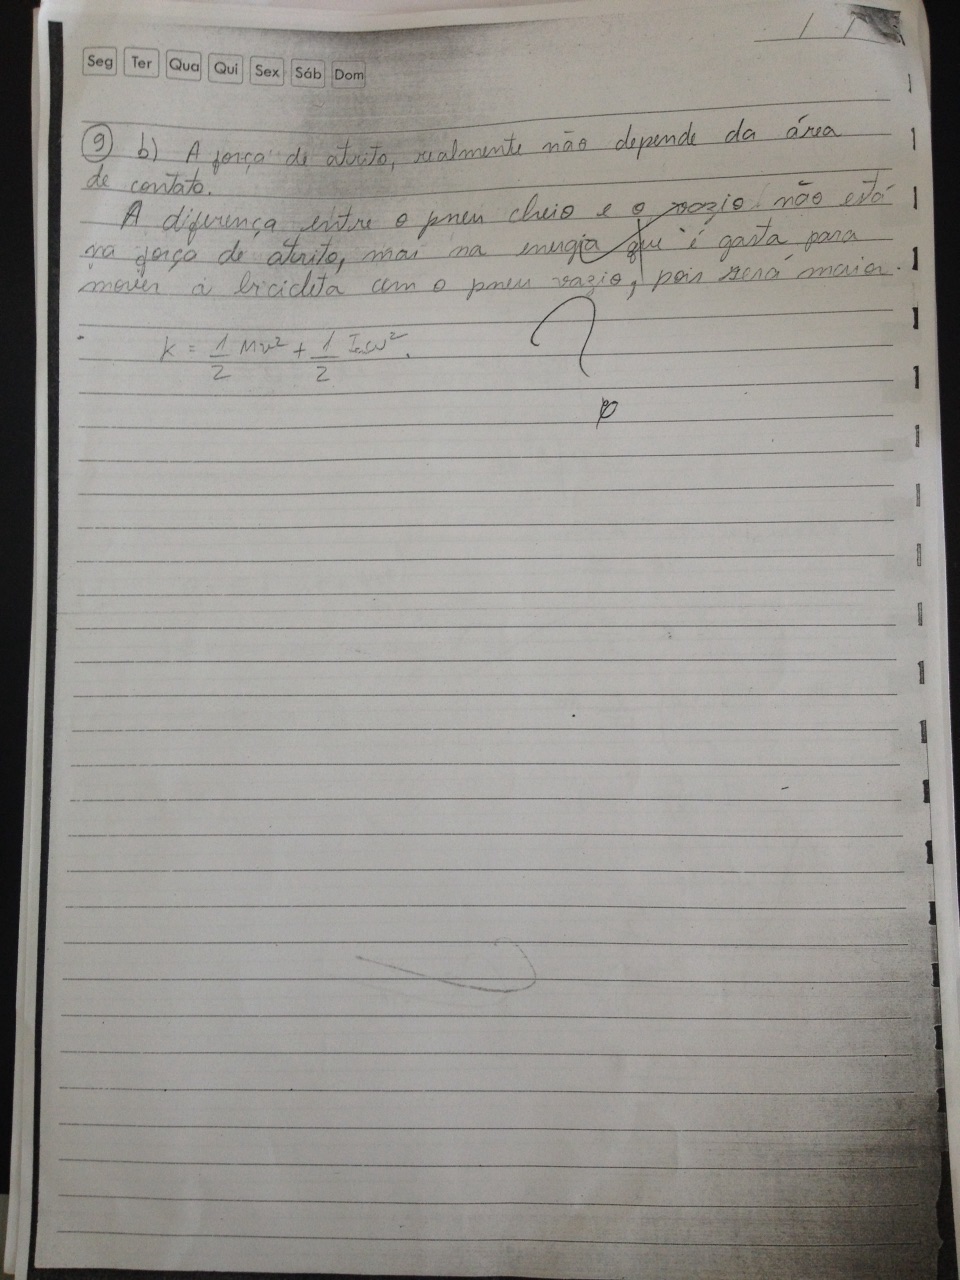 Seg Ter Qua Qui Sex Sáb Dom
/ /
9 b) A força de atrito, realmente não depende da área
de contato.
A diferença entre o pneu cheio e o vazio não está
na força de atrito, mas na energia que é gasta para
mover a bicicleta com o pneu vazio, pois será maior.
K = 1/2 Mv² + 1/2 Icω².
?